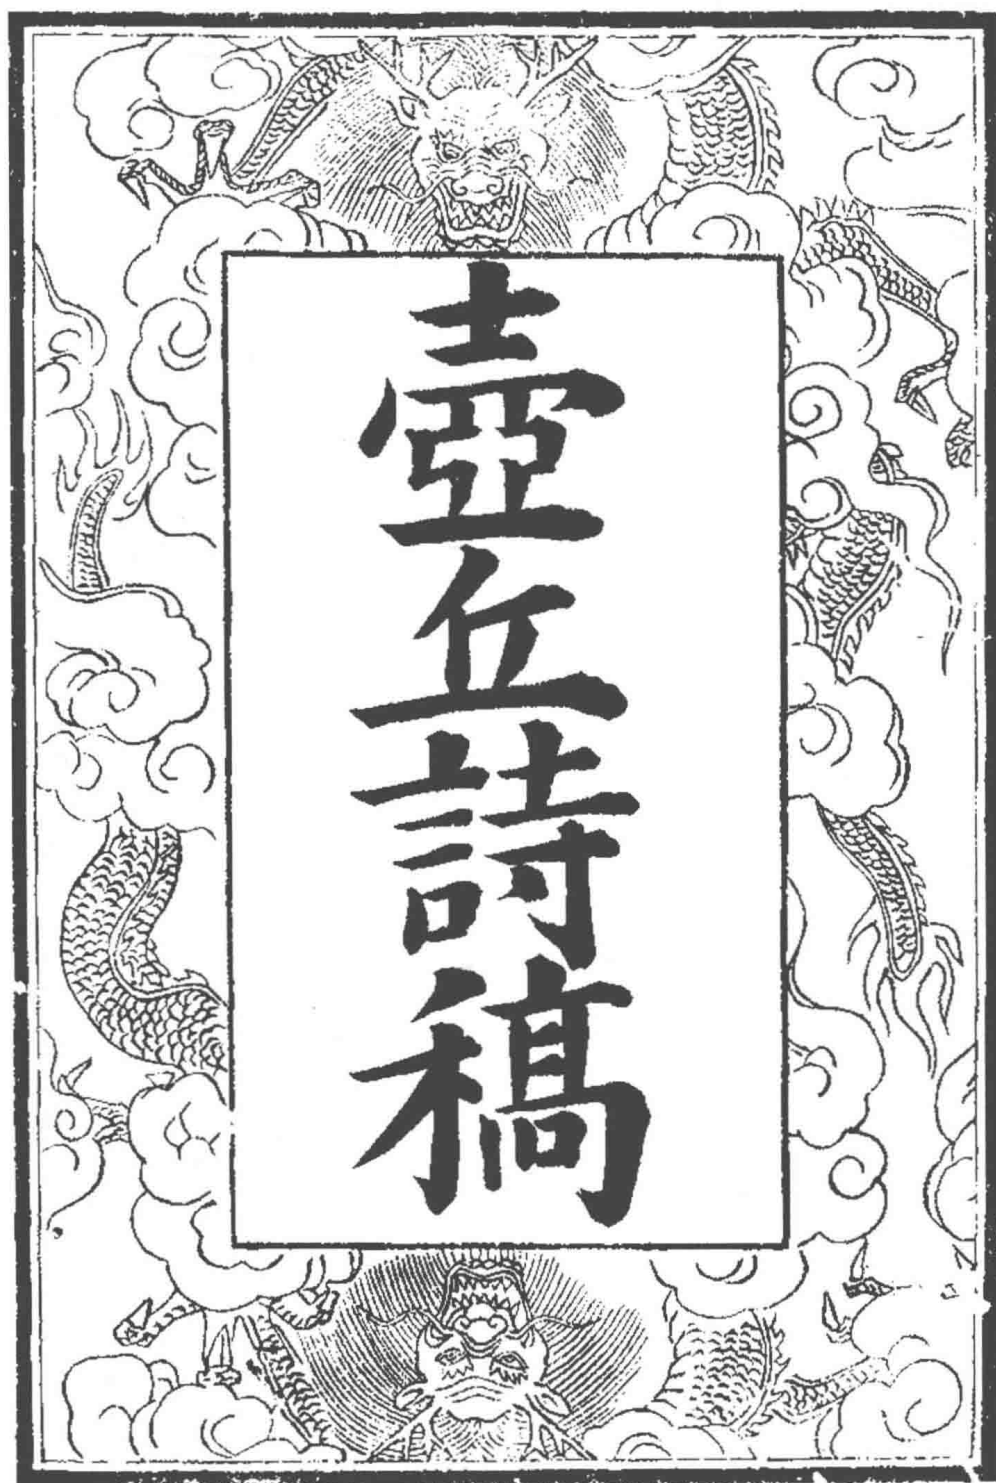 壺丘詩稿